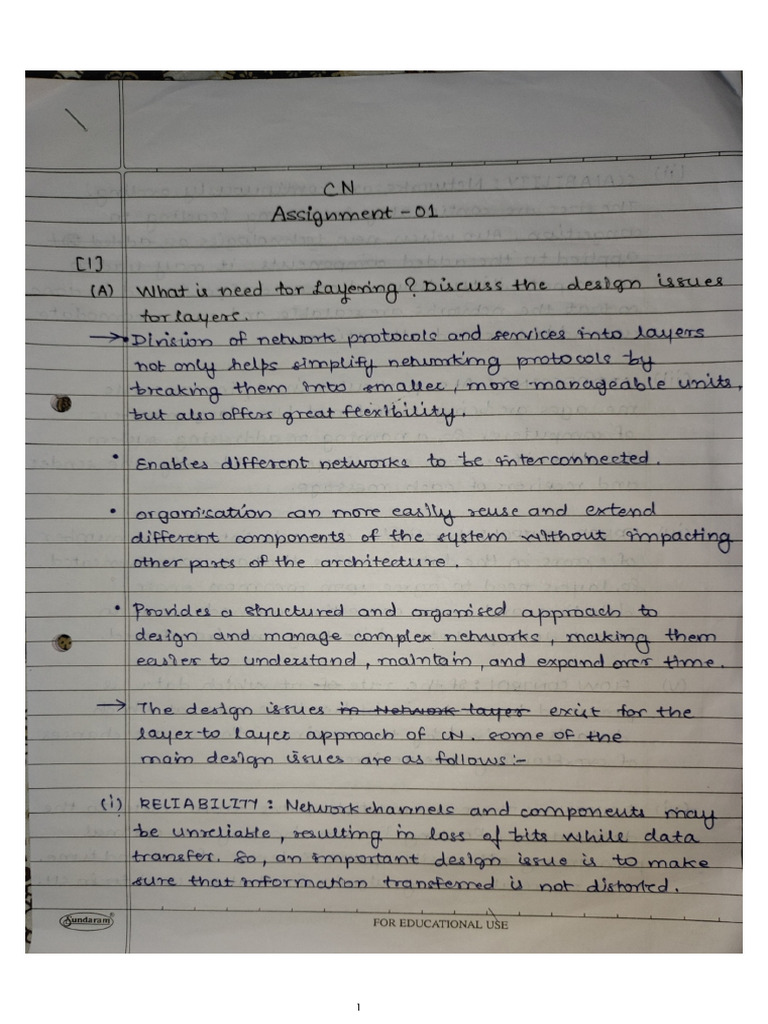 CN
Assignment - 01
[1]
(A) What is need for Layering? Discuss the design issues
for layers.
→ • Division of network protocols and services into layers
not only helps simplify networking protocols by
breaking them into smaller, more manageable units,
but also offers great flexibility.
• Enables different networks to be interconnected.
• organisation can more easily reuse and extend
different components of the system without impacting
other parts of the architecture.
• Provides a structured and organised approach to
design and manage complex networks, making them
easier to understand, maintain, and expand over time.
→ The design issues in Network layer exist for the
layer to layer approach of CN. some of the
main design issues are as follows:-
(i) RELIABILITY: Network channels and components may
be unreliable, resulting in loss of bits while data
transfer. So, an important design issue is to make
sure that information transferred is not distorted.
Sundaram®
FOR EDUCATIONAL USE
1